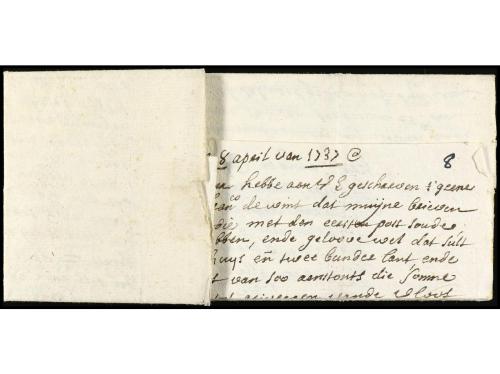 8 april van 1737 @ 8
hebbe aen geschreven t'geene
de wint dat muijne brieven
die met den eersten post soude
bben, ende geloove wel dat sult
uijs eñ twee bunder lant ende
van 500 aenstonts die somme
vande